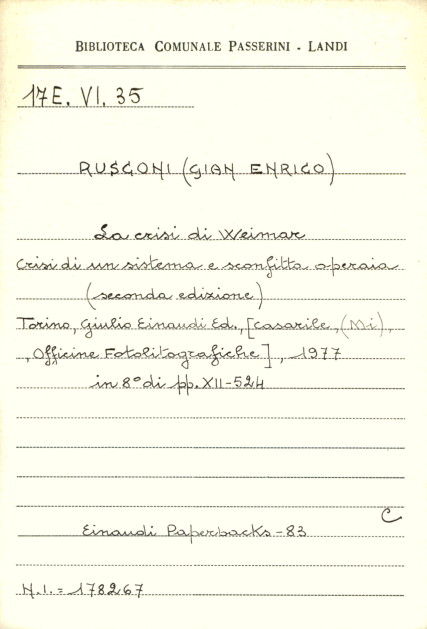 BIBLIOTECA COMUNALE PASSERINI - LANDI
17E. VI. 35
RUSCONI (GIAN ENRICO)
La crisi di Weimar
Crisi di un sistema e sconfitta operaia
(seconda edizione)
Torino, Giulio Einaudi Ed., [Casarile, (Mi),
, Officine Fotolitografiche], 1977
in 8° di pp. XII-524
C
Einaudi Paperbacks - 83
N.I. = 178267